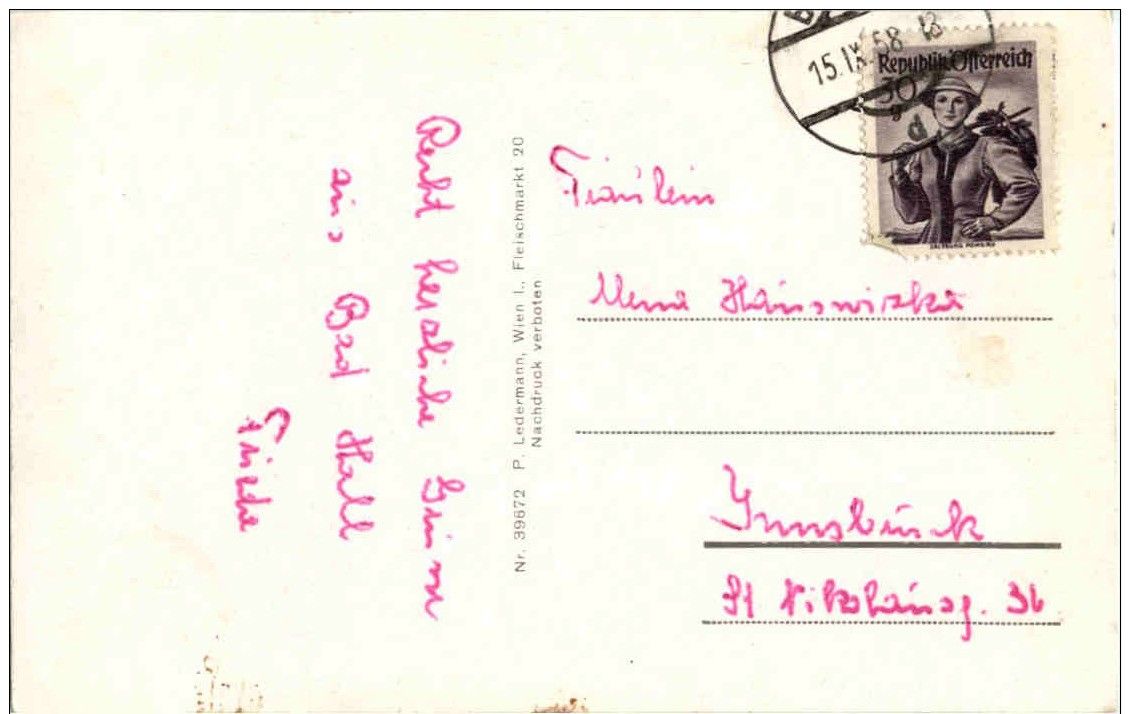 Recht herzliche Grüsse
aus Bad Hall
Friede
Nr. 39672 P. Ledermann, Wien I., Fleischmarkt 20
Nachdruck verboten
15.IX.58 13
d
Republik Österreich
30
g
Fräulein
Hauswirzka
Innsbruck
St Nikolausg. 36